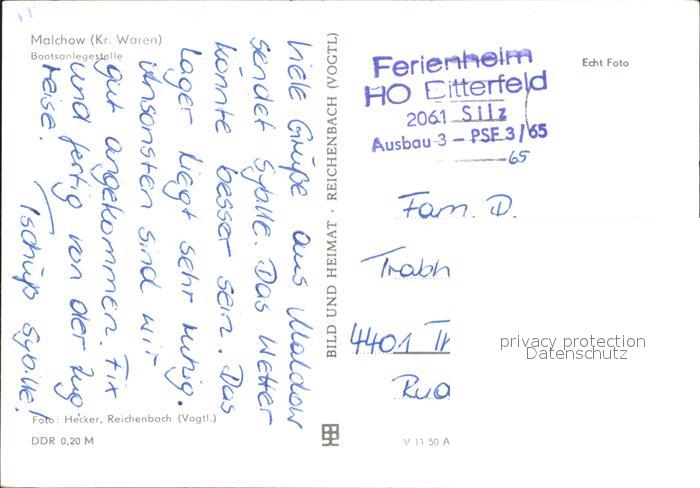 Malchow (Kr. Waren)
Bootsanlegestelle
Viele Grüße aus Malchow
sendet Sybille. Das Wetter
könnte besser sein. Das
Lager liegt sehr ruhig.
Ansonsten sind wir
gut angekommen. Fix
und fertig von der Zug
reise.
Tschüß Sybille!
Foto: Hecker, Reichenbach (Vogtl.)
DDR 0,20 M
BILD UND HEIMAT · REICHENBACH (VOGTL)
V 11 50 A
Echt Foto
Ferienheim
HO Bitterfeld
2061 Silz
Ausbau 3 – PSF 3/65
65
Fam. D.
Trabh
4401 Th
Rua
privacy protection
Datenschutz